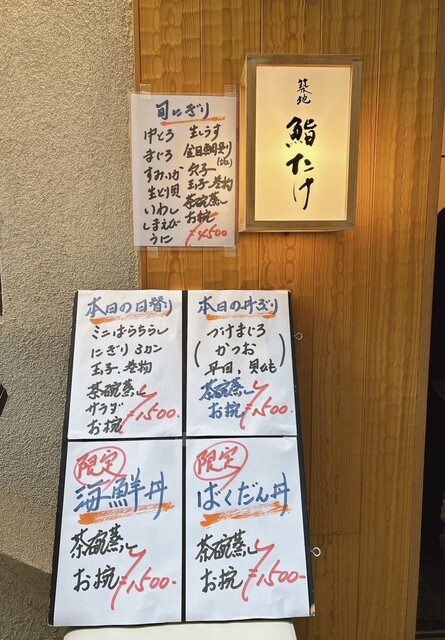 築地
鮨たけ
旬にぎり
中とろ
まぐろ
すみいか
生とり貝
いわし
しまえび
うに
生しらす
穴子
玉子、巻物
茶碗蒸し
お椀
¥4500
本日の日替り
ミニばらちらし
にぎり3カン
玉子、巻物
茶碗蒸し
サラダ
お椀
¥1,500-
本日の丼ぶり
づけまぐろ
かつお
平目、貝ひも
茶碗蒸し
お椀
¥1,500-
限定
海鮮丼
茶碗蒸し
お椀
¥1,500-
限定
ばくだん丼
茶碗蒸し
お椀
¥1,500-